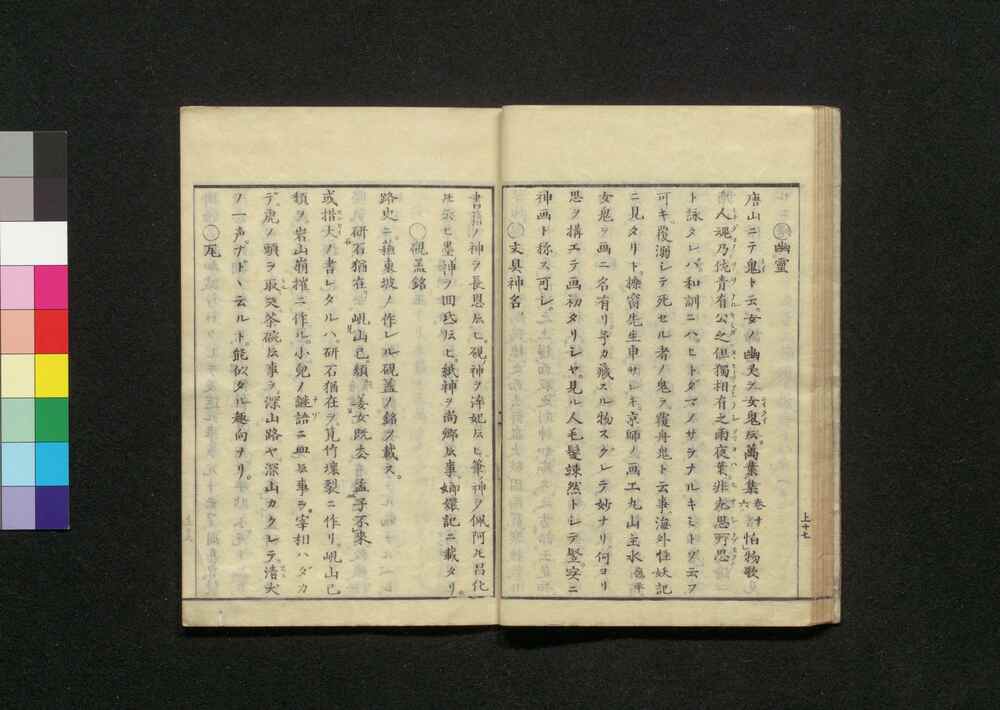 幽霊
唐山ニテ鬼ト云。女ノ幽灵ヲ女鬼𪜈。萬葉集巻十六怕物歌
人魂乃佐青有公之但獨相有之雨夜葉非左思所思
ト詠タレバ和訓ニハヒトダマノサヲナルキミトゾ云フ
可キ。覆溺レテ死セル者ノ鬼ヲ覆舟鬼ト云事、海外怪妖記
ニ見タリト、操觚先生申サレキ。京師ノ画工丸山主水
女鬼ヲ画ニ名有リ。予カ蔵スル物スグレテ妙ナリ。何ヨリ
思ヲ構エテ画初タリシヤ。見ル人毛髪竦然トシテ竪。実ニ
神画ト称ス可シ。
文具神名
書籍ノ神ヲ長恩ト云ヒ。硯神ヲ淬妃ト云ヒ。筆神ヲ佩阿ト云ヒ昌化
ト云ヒ墨神ヲ回氏ト云ヒ。紙神ヲ尚卿ト云事。嫏嬛記ニ載タリ。
硯蓋銘
路史ニ。蘇東坡ノ作レル硯蓋ノ銘ヲ載ス。
研石猶在。峴山已頽。姜女既去。孟子不来
或措大ノ書レタルハ。研石猶在ヲ。筧竹壊裂ニ作リ。峴山已
頽ヲ。岩山崩摧ニ作ル。小兒ノ謎語ニ ト云事ヲ。宰相ハダカ
デ。虎ノ頭ヲ取。天茶碗ト云事ヲ。深山路ヤ深山ガクレテ。清水
ノ一声。ブト丶云ルト。能似タル趣向ナリ。
尾
上十七